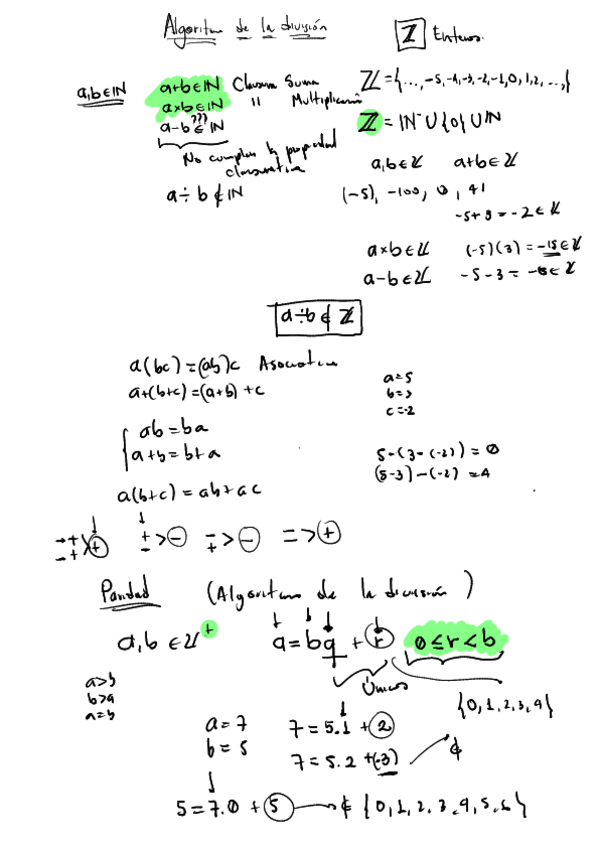 Algoritmo de la división
ℤ Enteros.
a,b∈ℕ a+b∈ℕ Clausura Suma
a×b∈ℕ " Multiplicación
a-b ∈??? ℕ
No cumplen la propiedad
clausurativa
a÷b∉ℕ
ℤ={...,-5,-4,-3,-2,-1,0,1,2,...,}
ℤ=ℕ⁻∪{0}∪ℕ
a,b∈ℤ a+b∈ℤ
(-5), -100, 0, 41
-5+3=-2∈ℤ
a×b∈ℤ (-5)(3)=-15∈ℤ
a-b∈ℤ -5-3=-8∈ℤ
a÷b∉ℤ
a(bc)=(ab)c Asociativa
a+(b+c)=(a+b)+c
ab=ba
a+b=b+a
a(b+c)=ab+ac
a=5
b=3
c=-2
5-(3-(-2))=0
(5-3)-(-2)=4
-+ + > +
+ - > -
- + > -
= > +
Paridad (Algoritmo de la división)
a,b∈ℤ⁺ a=bq+r 0≤r<b
Únicos
{0,1,2,3,4}
a>b
b>a
a=b
a=7 7=5.1+2
b=5 7=5.2+(-3) ∉
5=7.0+5 ∉{0,1,2,3,4,5,6}